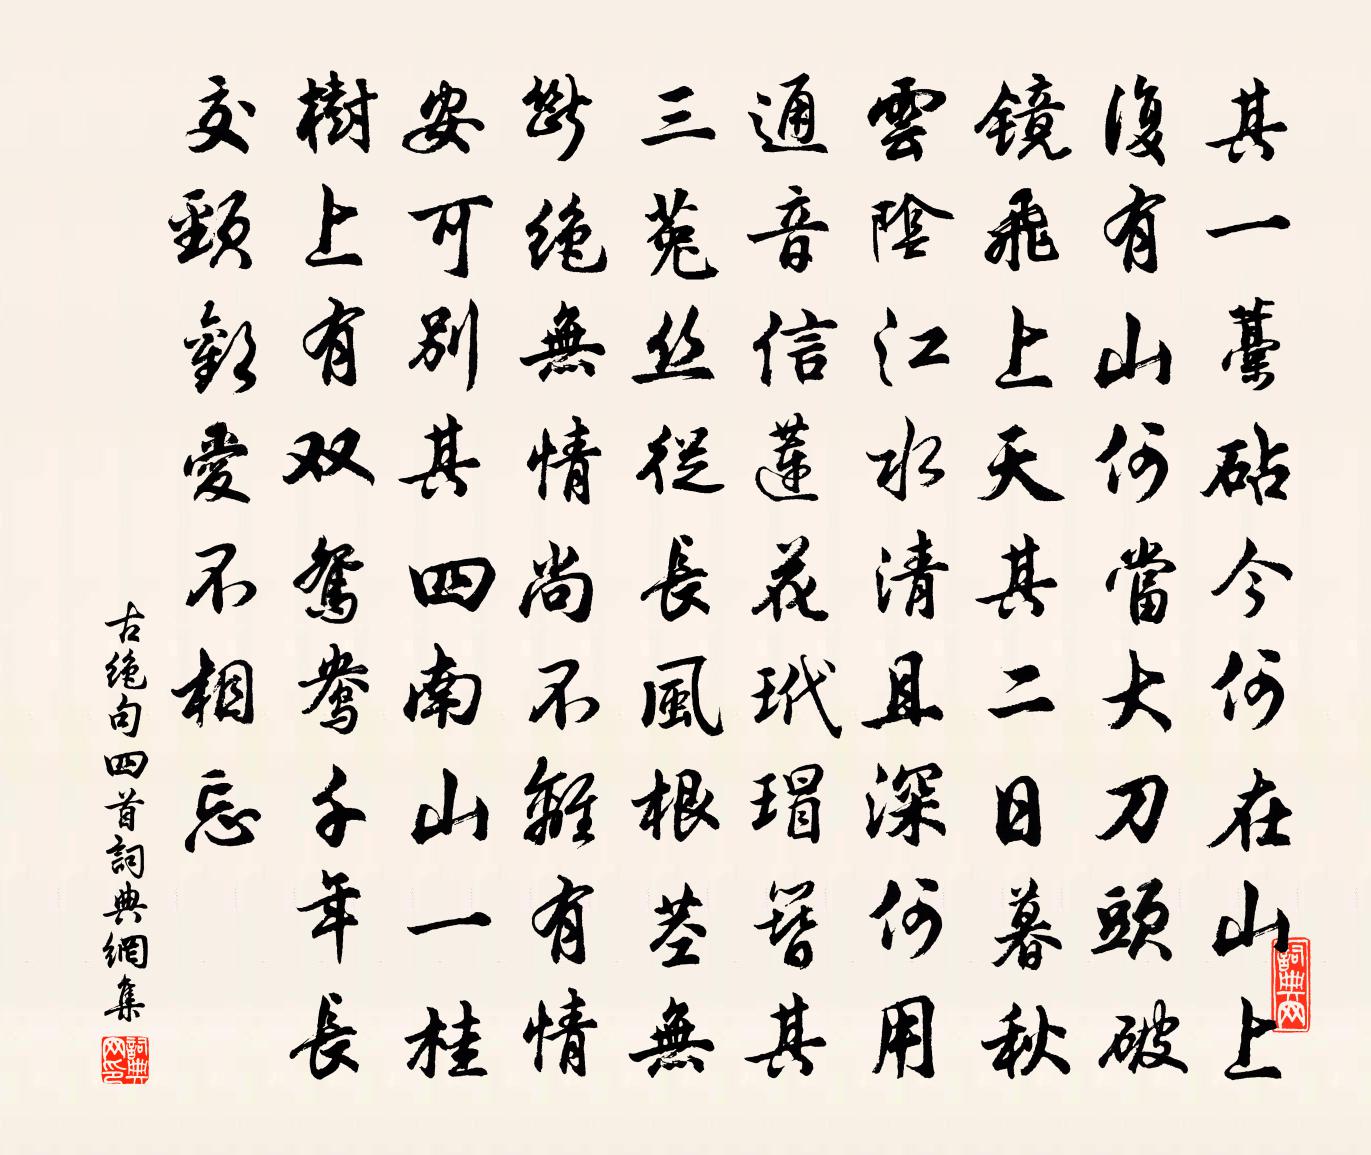 其一藁砧今何在山上
復有山何當大刀頭破
镜飛上天其二日暮秋
雲陰江水清且深何用
通音信蓮花玳瑁簪其
三菟丝從長風根莖無
斷绝無情尚不離有情
安可别其四南山一桂
樹上有双鴛鴦千年長
交頸歡愛不相忘
古绝句四首詞典網集
詞典网
詞典网印